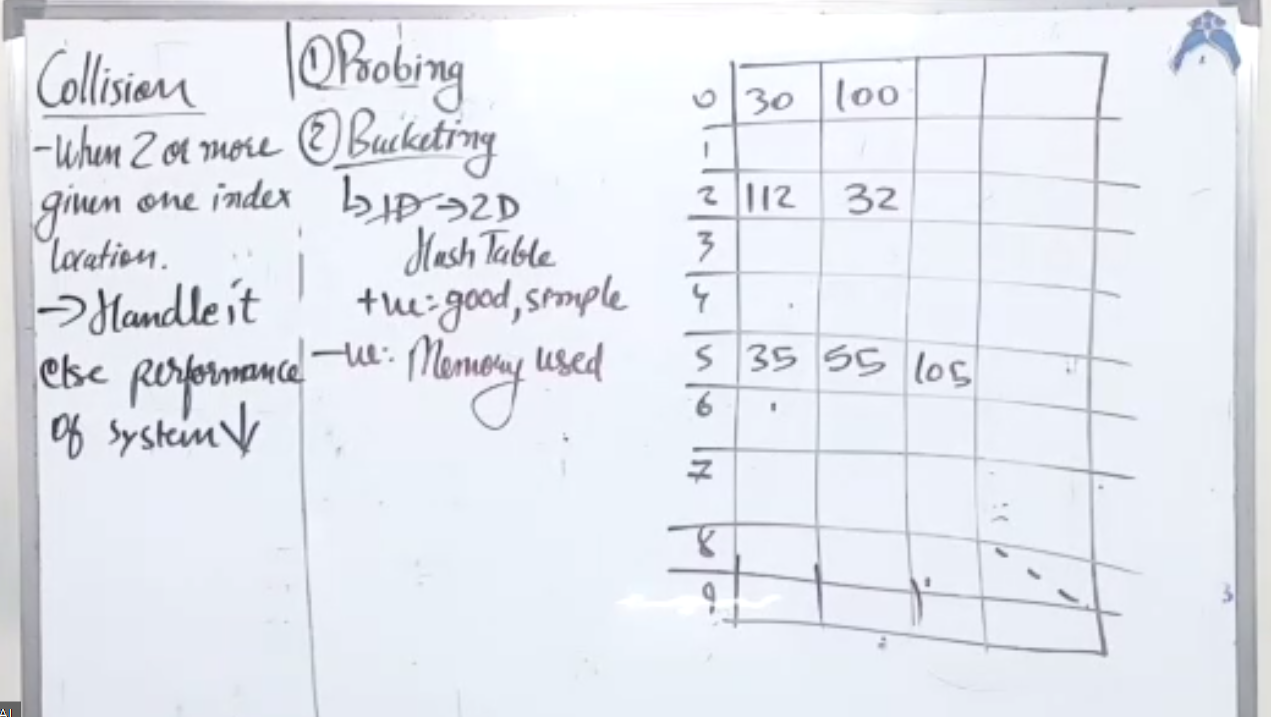 Collision
-When 2 or more
given one index
location.
→ Handle it
else performance
of system ↓
① Probing
② Bucketing
↳ 1D → 2D
Hash Table
+ve: good, simple
-ve: Memory used
0 30 100
1
2 112 32
3
4
5 35 55 105
6
7
8
9